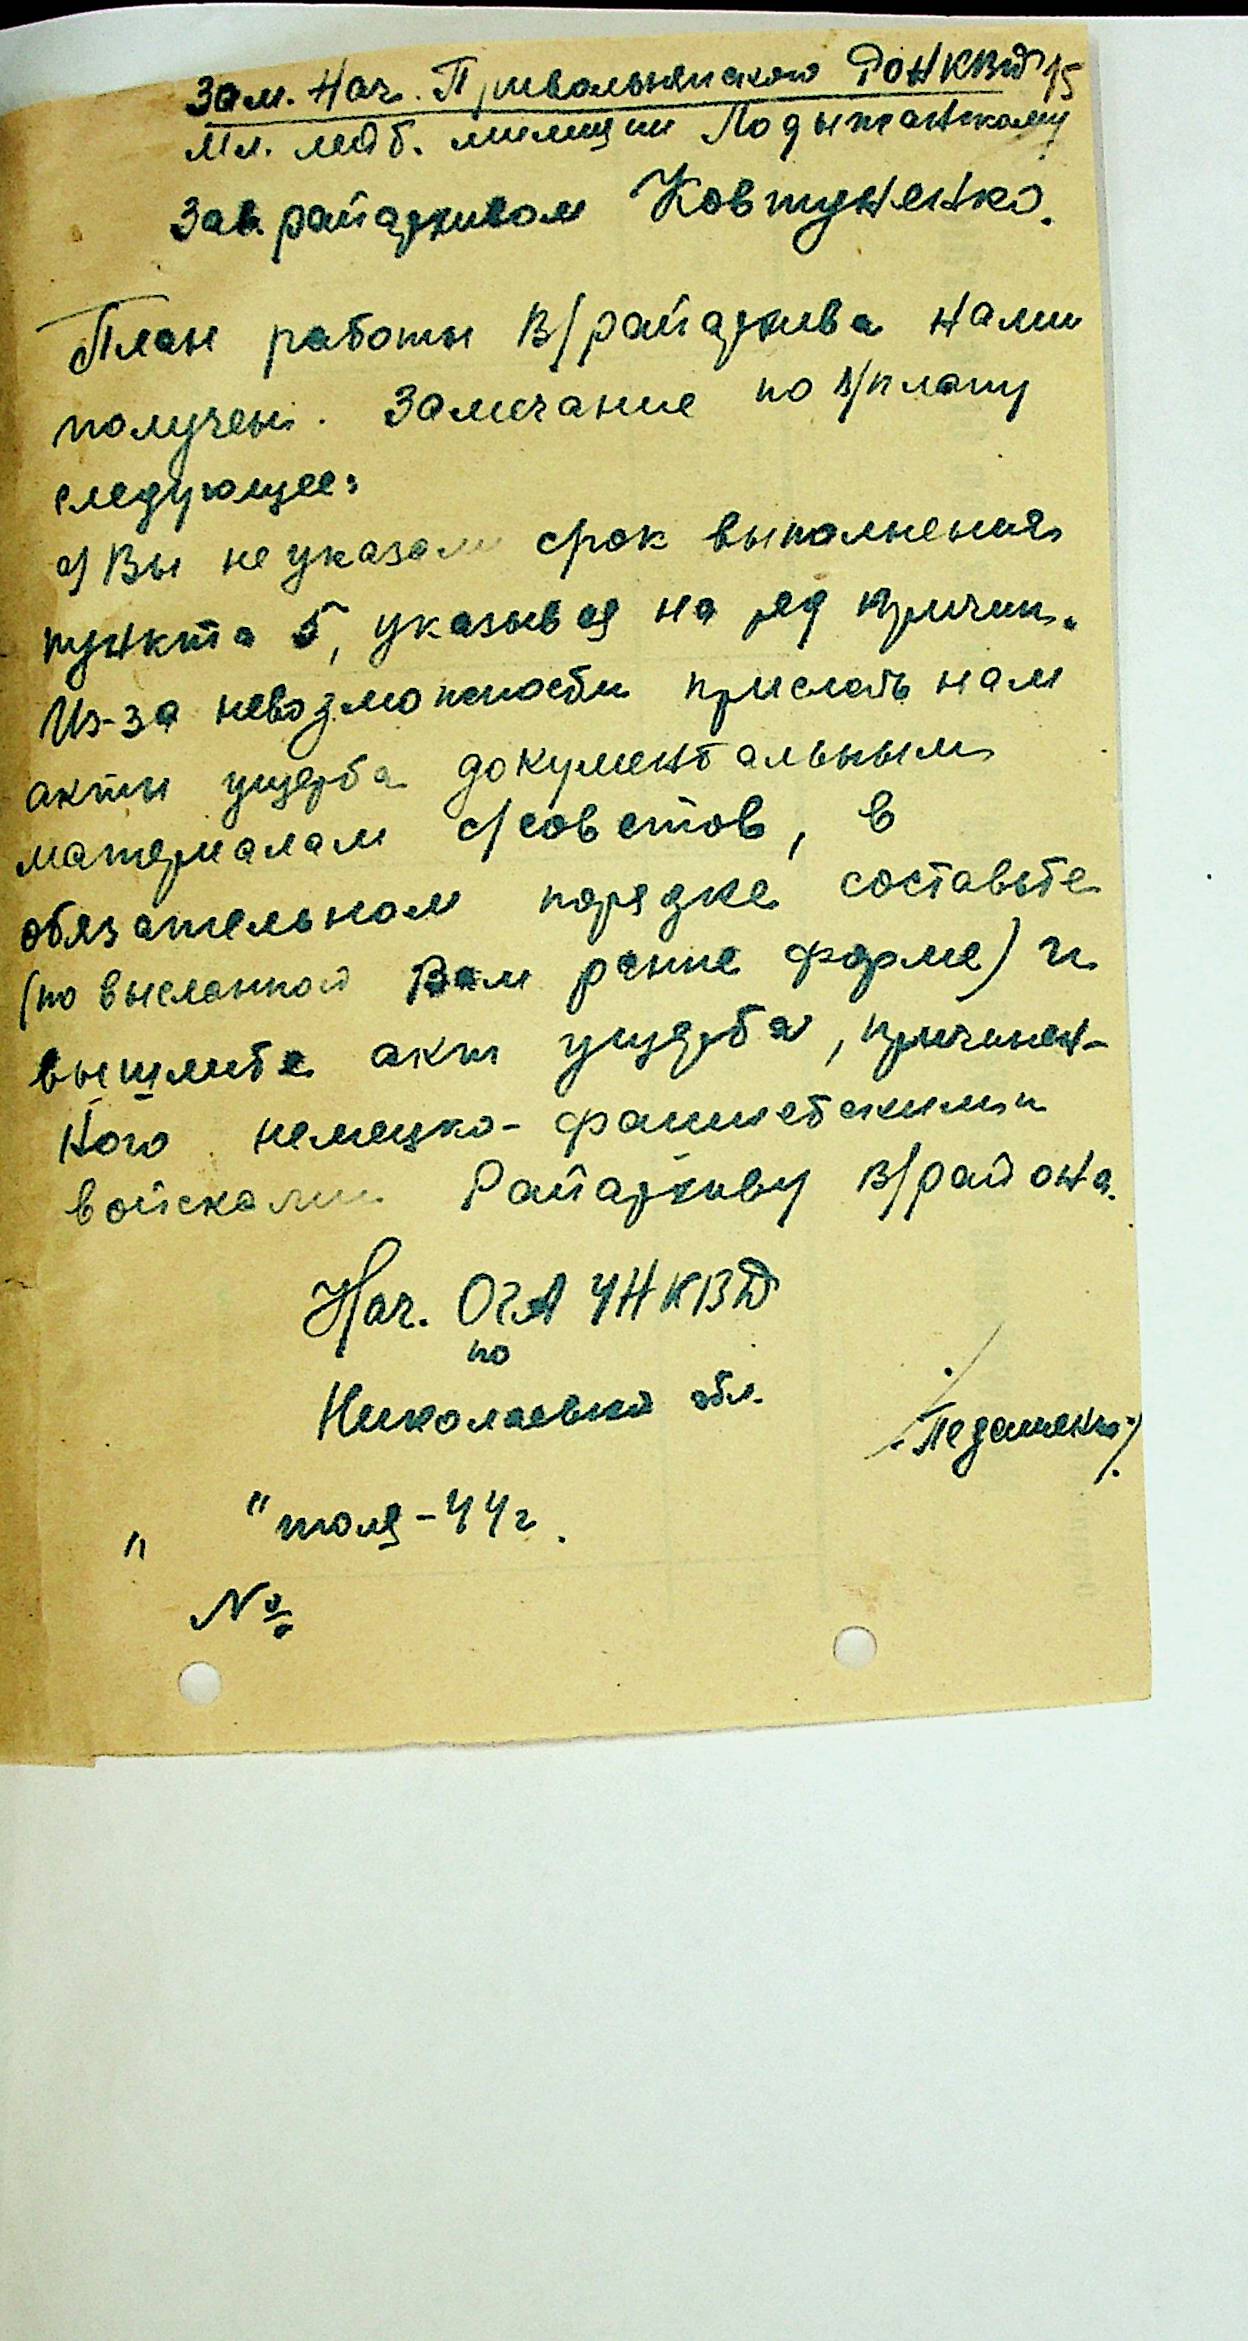 Зам. Нач. Привольнянского РОНКВД 15
Мл. лейт. милиции Лодыжанскому
Зав. райархивом Ковтуненко.
План работы В/райархива нами
получен. Замечание по в/плану
следующее:
а) Вы не указали срок выполнения
пункта 5, указывая на ряд причин.
Из-за невозможности прислать нам
акты ущерба документальным
материалам с/советов, в
обязательном порядке составьте
(по высланной Вам ранее форме) и
вышлите акт ущерба, причинен-
ного немецко-фашистскими
войсками Райархиву В/района.
Нач. ОГА УНКВД
по
Николаевской обл.
" " июля-44 г.
№